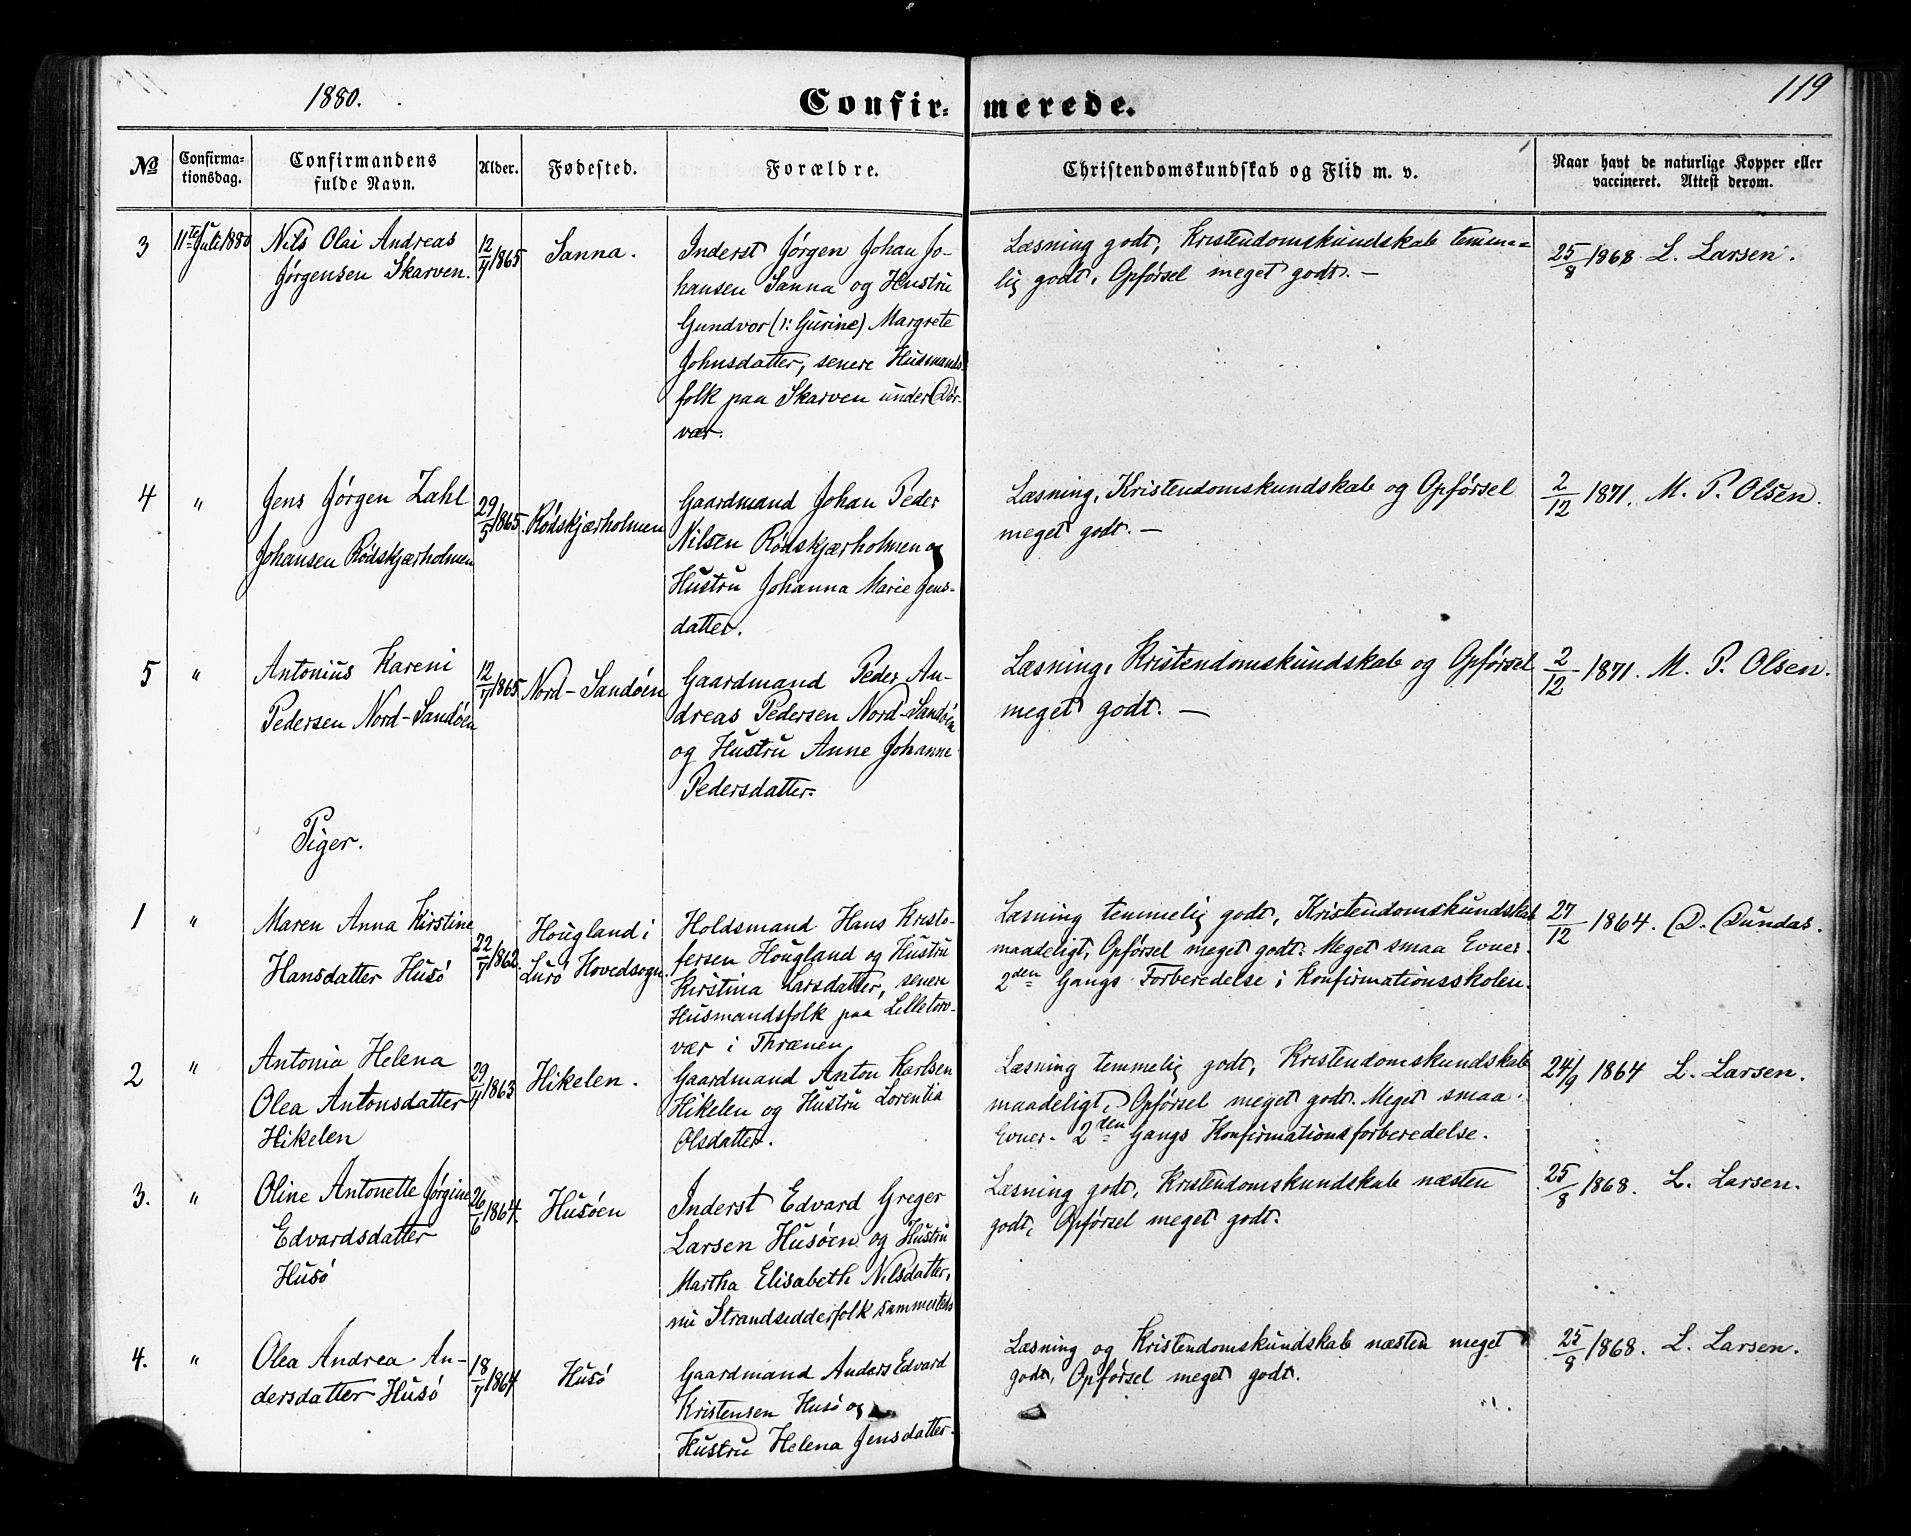 1880.
Confir= merede.
119
No
Confirma-
tionsdag.
Confirmandens
fulde Navn.
Alder.
Fødested.
Forældre.
Christendomskundskab og Flid m. v.
Naar havt de naturlige Kopper eller
vaccineret. Attest derom.
3
11te Juli 1880
Nils Olai Andreas
Jørgensen Skarven.
12/4 1865
Sanna.
Inderst Jørgen Johan Jo-
hansen Sanna og Hustru
Gundvor (ɔ: Gurine) Margrete
Johnsdatter, senere Husmands-
folk paa Skarven under Dør-
vær.
Læsning godt, Kristendomskundskab temme=
lig godt, Opførsel meget godt. —
25/8 1868. L. Larsen.
4
"
Jens Jørgen Zahl
Johansen Rødskjærholmen
29/5 1865.
Rødskjærholmen
Gaardmand Johan Peder
Nilsen Rødskjærholmen og
Hustru Johanna Marie Jens-
datter.
Læsning, Kristendomskundskab og Opførsel
meget godt. —
2/12 1871. M. P. Olsen.
5
"
Antonius Kareni
Pedersen Nord-Sandøen
12/7 1865
Nord-Sandøen
Gaardmand Peder An-
dreas Pedersen Nord-Sandøen
og Hustru Anne Johanne
Pedersdatter.
Læsning, Kristendomskundskab og Opførsel
meget godt. —
2/12 1871. M. P. Olsen.
Piger.
1
"
Maren Anna Kirstine
Hansdatter Husø
22/7 1862.
Hougland i
Lurø Hovedsogn.
Holdsmand Hans Kristo-
fersen Hougland og Hustru
Kirstina Larsdatter, senere
Husmandsfolk paa Lilletorv-
vær i Thrænen.
Læsning temmelig godt, Kristendomskundskab
maadeligt, Opførsel meget godt. Meget smaa Evner.
2den Gangs Forberedelse i Konfirmationsskolen.
27/12 1864. D. Dundas.
2
"
Antonia Helena
Olea Antonsdatter
Hikelen
29/4 1863
Hikelen.
Gaardmand Anton Karlsen
Hikelen og Hustru Lorentia
Olsdatter.
Læsning temmelig godt, Kristendomskundskab
maadeligt, Opførsel meget godt. Meget smaa
Evner. 2den Gangs Konfirmationsforberedelse.
24/9 1864 L. Larsen.
3.
"
Oline Antonette Jørgine
Edvardsdatter
Husø
26/6 1864.
Husøen
Inderst Edvard Greger
Larsen Husøen og Hustru
Martha Elisabeth Nilsdatter,
nu Strandsedderfolk sammesteds
Læsning godt, Kristendomskundskab næsten
godt, Opførsel meget godt.
25/8 1868. L. Larsen.
4.
"
Olea Andrea An-
dersdatter Husø
18/7 1864
Husø
Gaardmand Anders Edvard
Kristensen Husø og
Hustru Helena Jensdatter.
Læsning og Kristendomskundskab næsten meget
godt, Opførsel meget godt.
25/8 1868. L. Larsen.